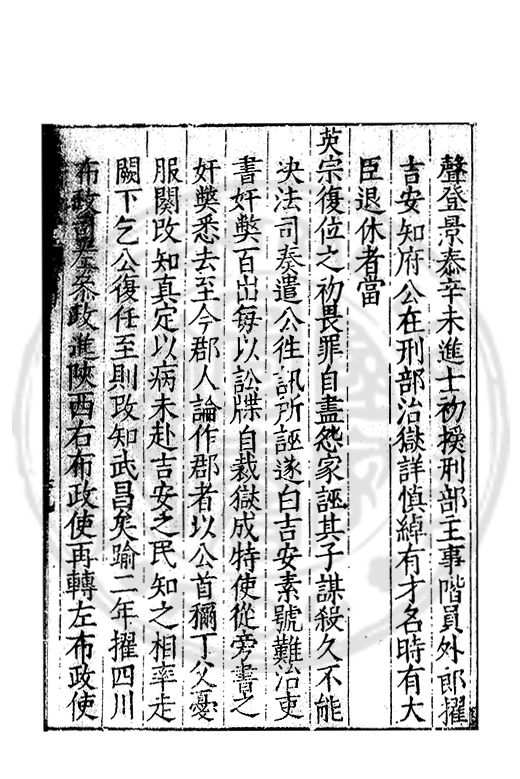 聲登景泰辛未進士初授刑部主事階員外郎擢
吉安知府公在刑部治獄詳慎綽有才名時有大
臣退休者當
英宗復位之初畏罪自盡怨家誣其子謀殺久不能
决法司奏遣公徃訊所誣遂白吉安素號難治吏
書奸弊百出每以訟牒自裁獄成特使從旁書之
奸弊悉去至今郡人論作郡者以公首稱丁父憂
服闋改知真定以病未赴吉安之民知之相率走
闕下乞公復任至則改知武昌矣踰二年擢四川
布政司左叅政進陝西右布政使再轉左布政使